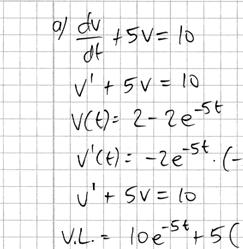 a) dv/dt + 5v = 10
v' + 5v = 10
v(t) = 2 - 2e^-5t
v'(t) = -2e^-5t · (-
v' + 5v = 10
V.L. = 10e^-5t + 5(